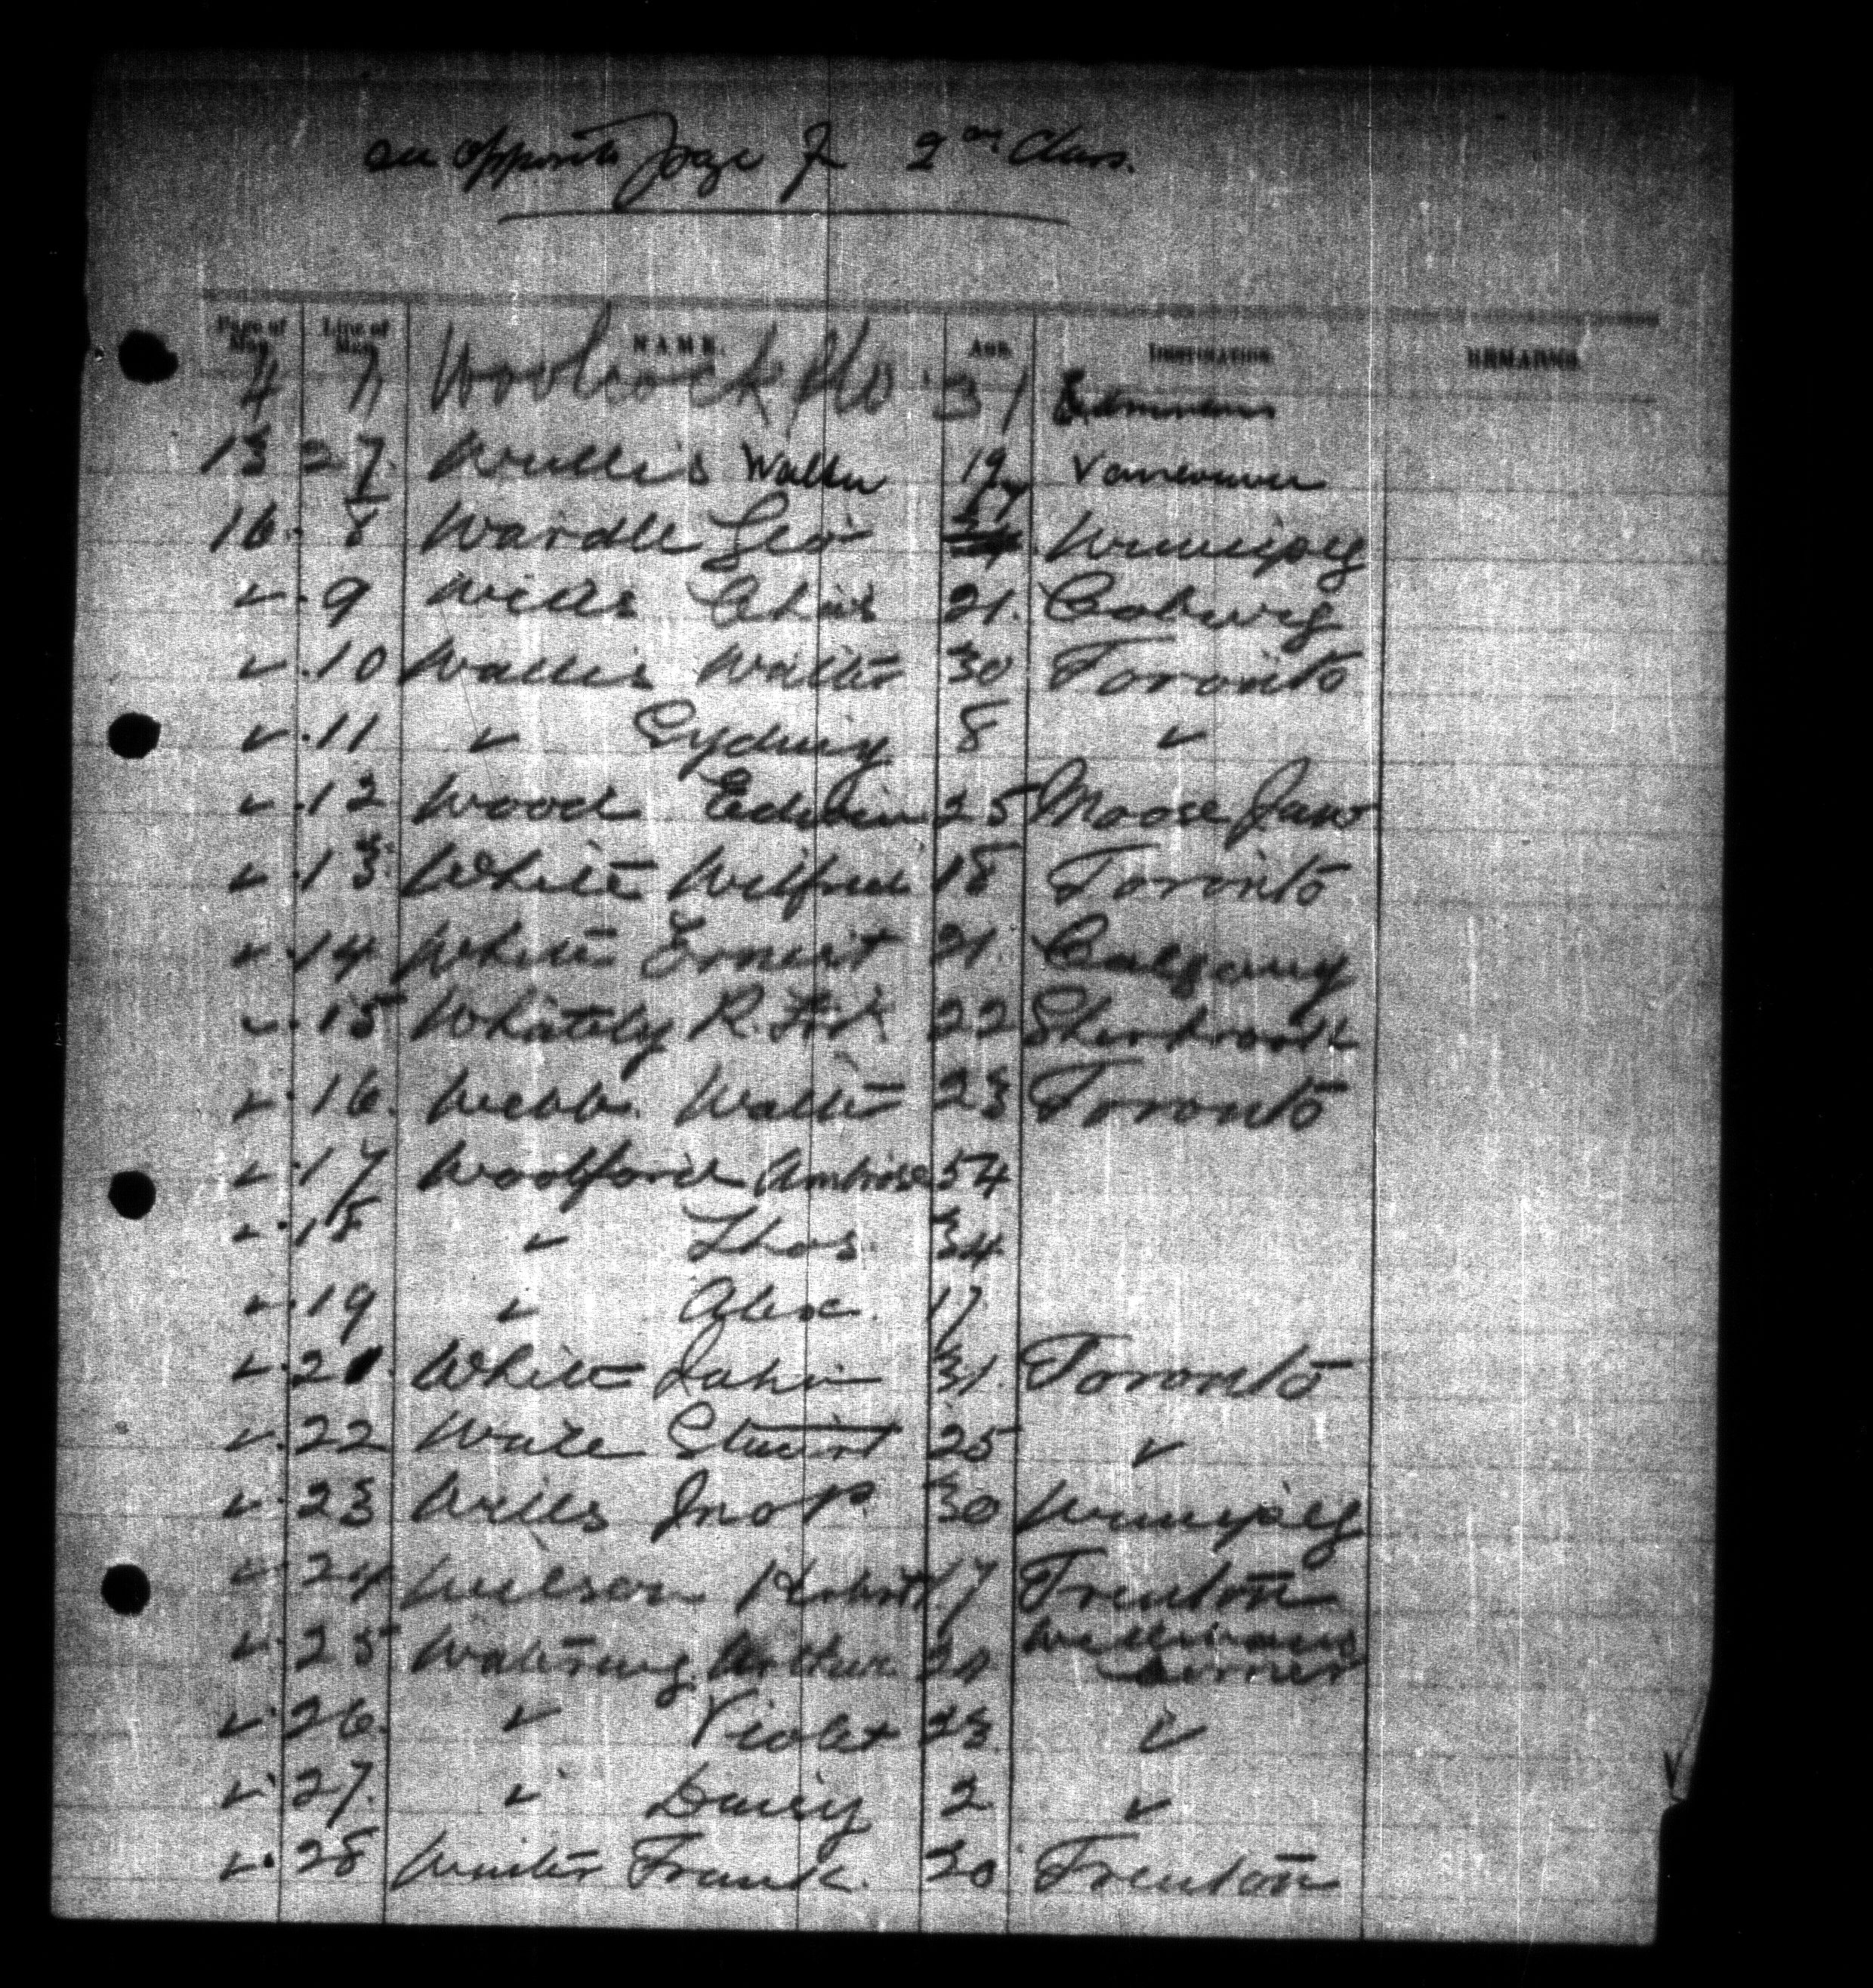 see opposite page for 2nd Class.
Page of Man. Line of Man. NAME. Age DESTINATION REMARKS
4 7 Woolcock Flo 31 Edmonton
13 27 Willis Walter 19 Vancouver
16 8 Wardle Geo 24 Winnipeg
✓ 9 Wills Chas 21 Coburg
✓ 10 Wallis Walter 30 Toronto
✓ 11 ✓ Sydney 8 ✓
✓ 12 Wood Edwin 25 Moose Jaw
✓ 13 White Wilfred 18 Toronto
✓ 14 White Ernest 21 Calgary
✓ 15 Whately R. 22 Sherbrook
✓ 16 Webb Walter 23 Toronto
✓ 17 Woolford Ambrose 54
✓ 18 ✓ Thos. 34
✓ 19 ✓ Alex. 17
✓ 21 White John 31 Toronto
✓ 22 Ware Stuart 25 ✓
✓ 23 Wills Jno P. 30 Winnipeg
✓ 24 Wilson 17 Trenton
✓ 25 Watering Arthur 24 Williams Corner
✓ 26 ✓ Violet 23 ✓
✓ 27 ✓ Daisy 2 ✓
✓ 28 Winter Frank 20 Trenton